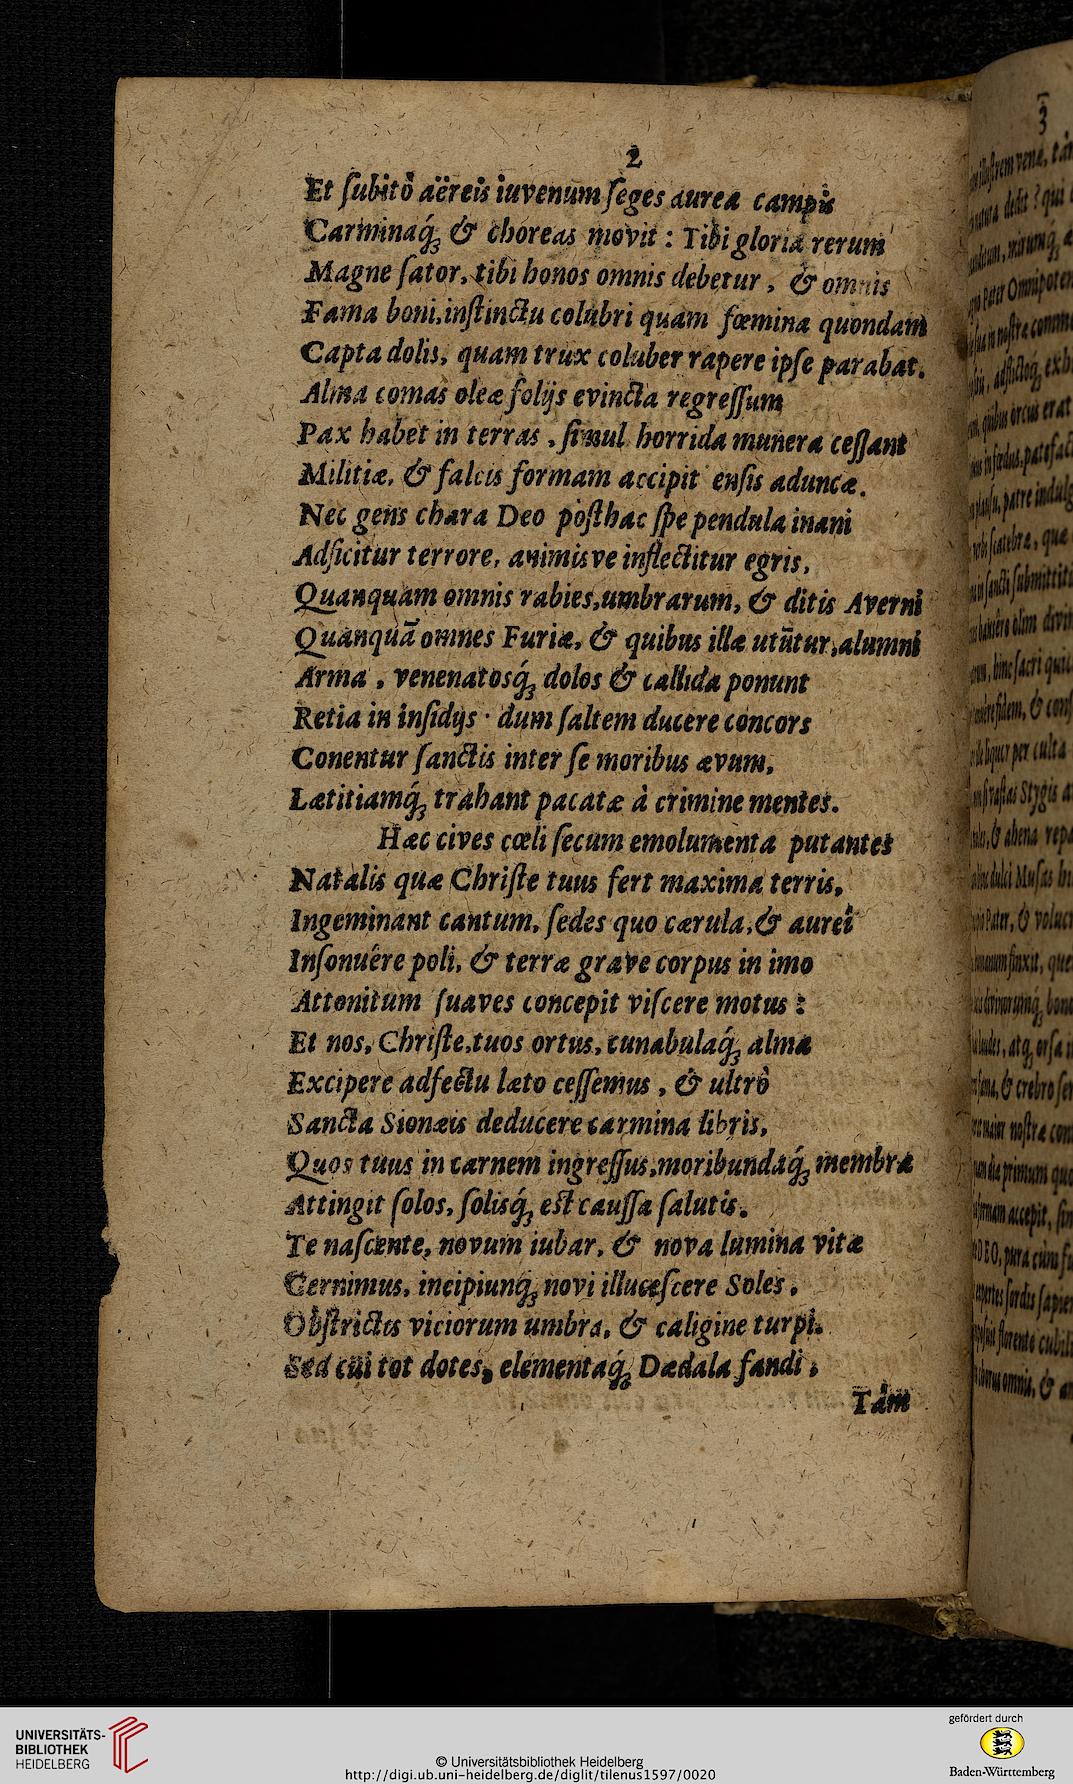 2
Et ſubitò aëreis iuvenum ſeges aurea campis
Carminaq́ꝫ & choreas movit : Tibi gloria rerum
Magne ſator, tibi honos omnis debetur, & omnis
Fama boni, inſtinctu colubri quam fœmina quondam
Capta dolis, quam trux coluber rapere ipſe parabat.
Alma comas oleæ folijs evincta regreſſum
Pax habet in terras, ſimul horrida munera ceſſant
Militiæ, & falcis formam accipit enſis aduncæ.
Nec gens chara Deo poſthac ſpe pendula inani
Adficitur terrore, animisve inflectitur egris,
Quanquam omnis rabies, umbrarum, & ditis Averni
Quanquã omnes Furiæ, & quibus illæ utũtur, alumni
Arma, venenatosq́ꝫ dolos & callida ponunt
Retia in inſidijs · dum ſaltem ducere concors
Conentur ſanctis inter ſe moribus ævum,
Lætitiamq́ꝫ trahant pacatæ à crimine mentes.
Hæc cives cœli ſecum emolumenta putantes
Natalis quæ Chriſte tuus fert maxima terris,
Ingeminant cantum, ſedes quo cærula, & aurei
Inſonuêre poli, & terræ grave corpus in imo
Attonitum ſuaves concepit viſcere motus :
Et nos, Chriſte, tuos ortus, cunabulaq́ꝫ alma
Excipere adfectu læto ceſſemus, & ultrò
Sancta Sionæis deducere carmina libris,
Quos tuus in carnem ingreſſus, moribundaq́ꝫ membra
Attingit ſolos, ſolisq́ꝫ eſt cauſſa ſalutis.
Te naſcente, novum iubar, & nova lumina vitæ
Cernimus, incipiunq́ꝫ novi illuceſcere Soles,
Obſtrictis viciorum umbra, & caligine turpi.
Sed cui tot dotes, elementaq́ꝫ Dædala fandi,
Tàm
3
UNIVERSITÄTS-
BIBLIOTHEK
HEIDELBERG
© Universitätsbibliothek Heidelberg
http://digi.ub.uni-heidelberg.de/diglit/tilenus1597/0020
gefördert durch
Baden-Württemberg